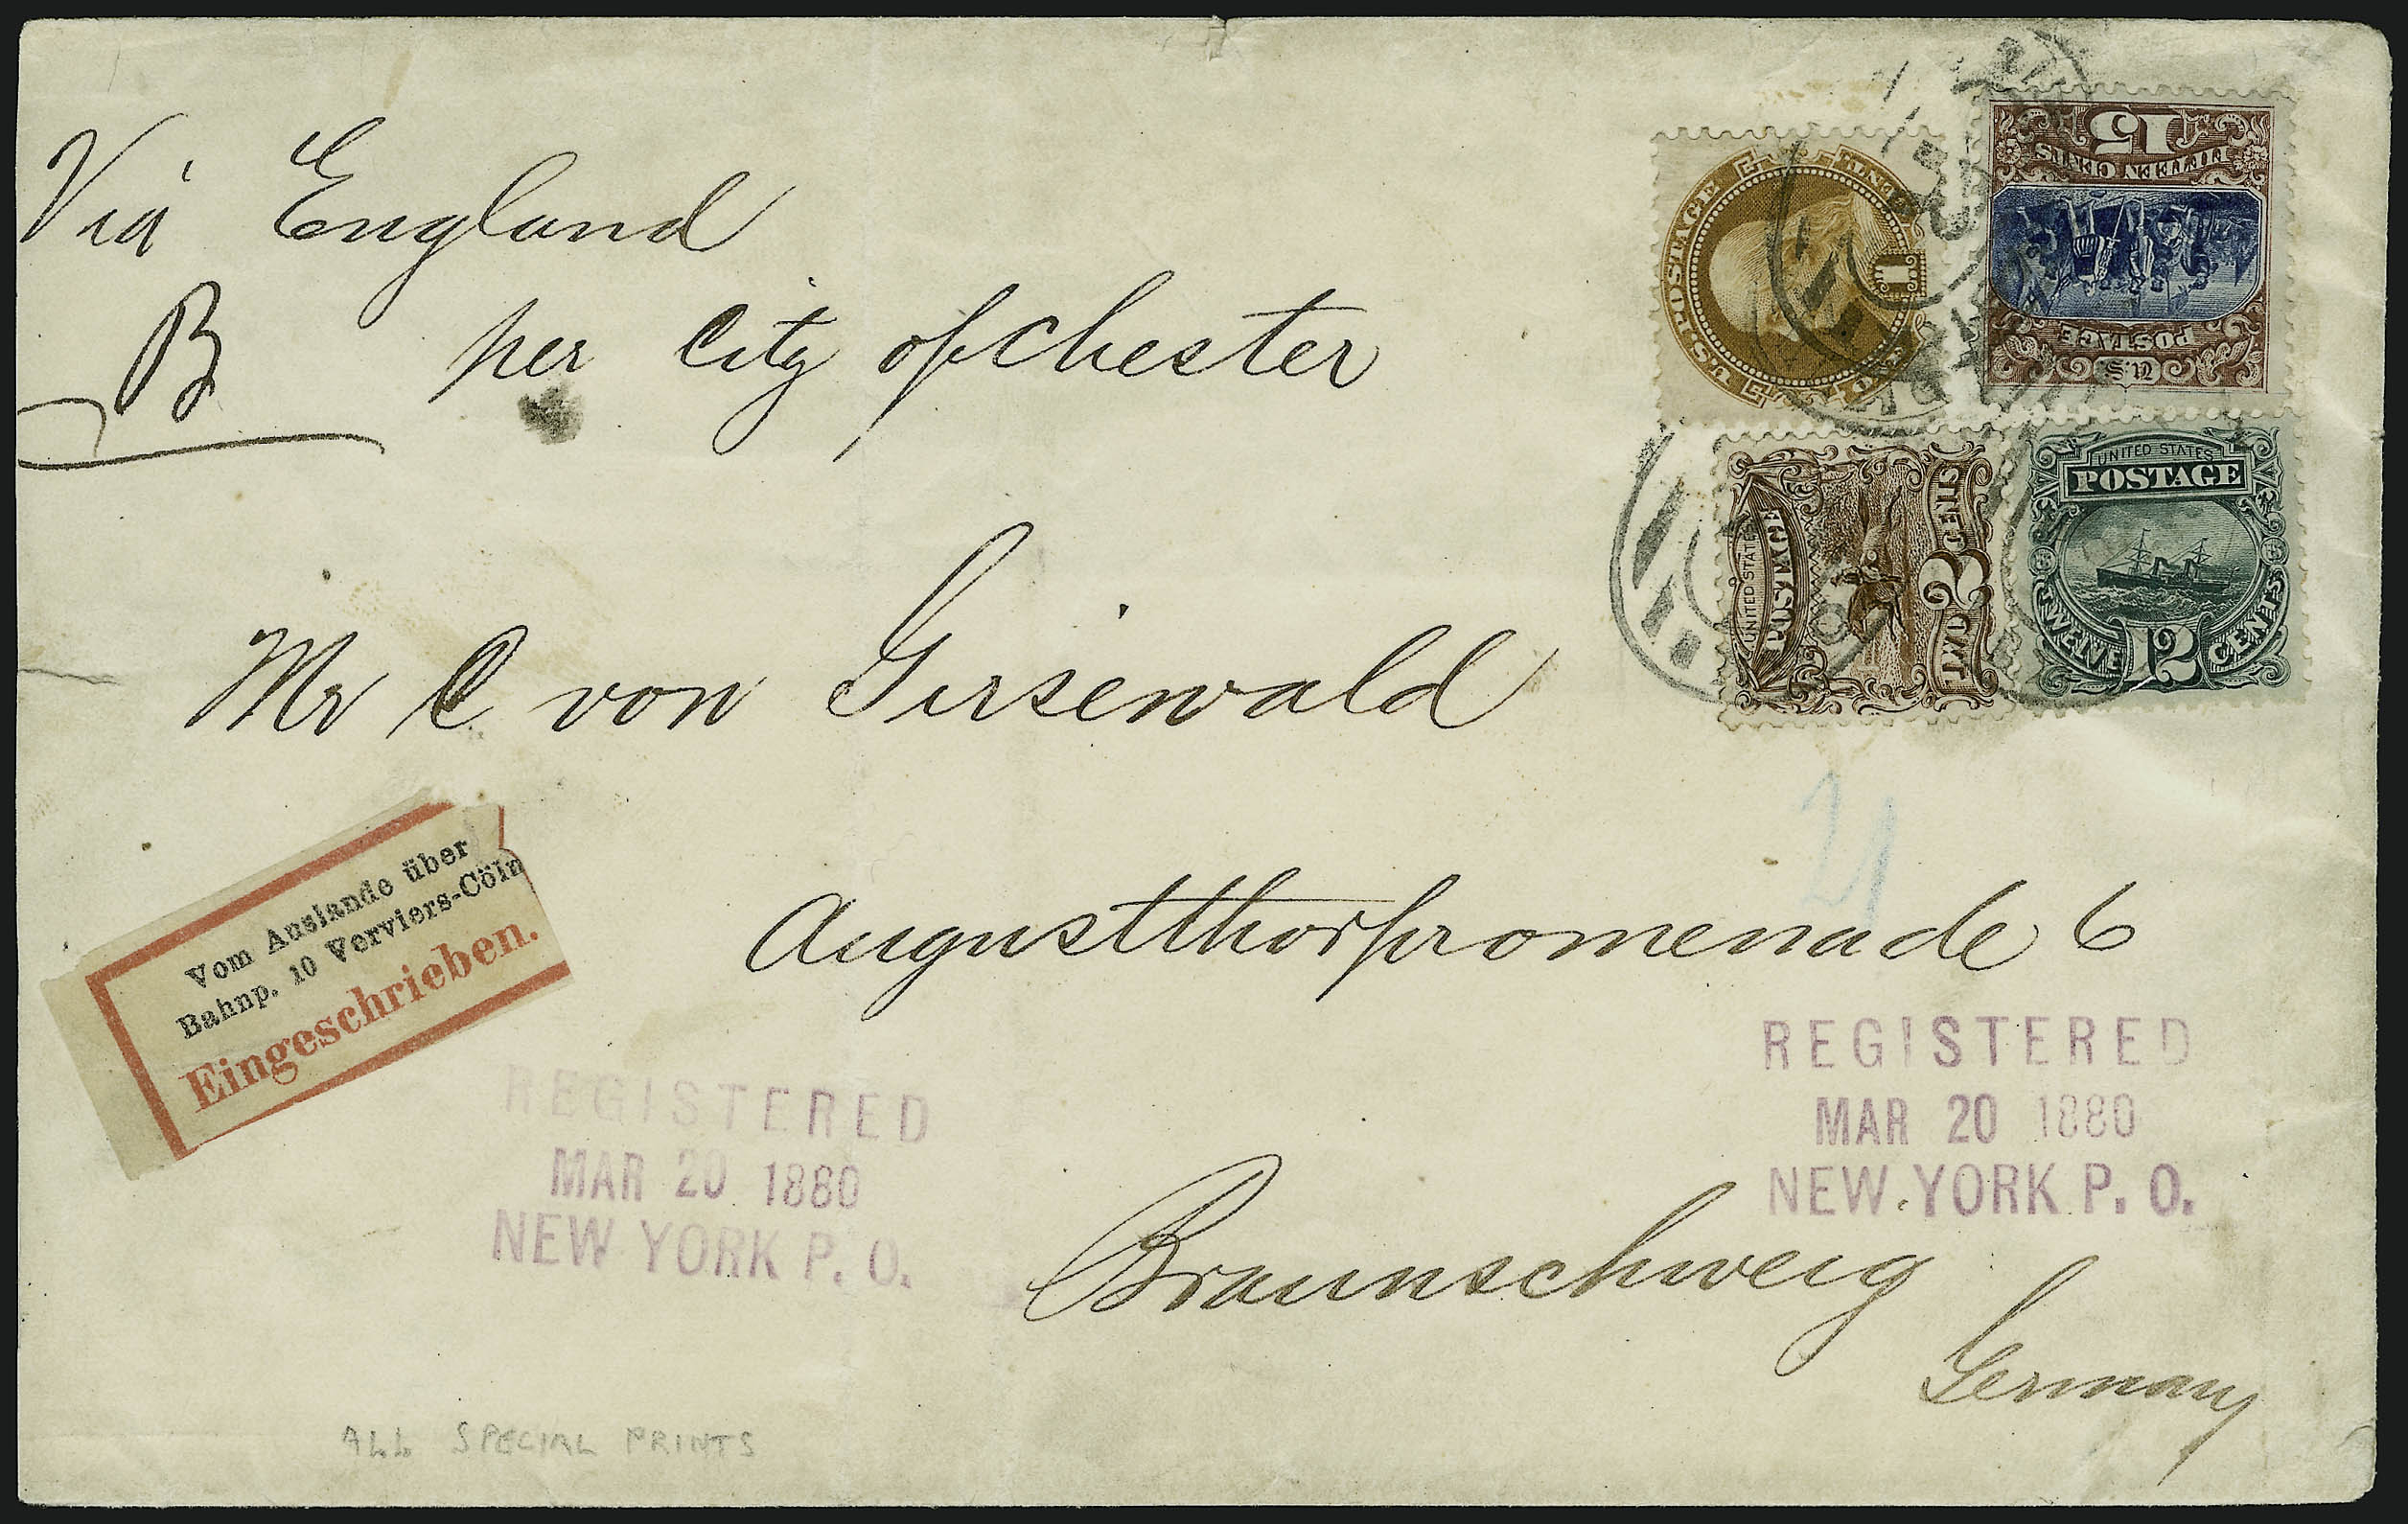 Via England
B per City of Chester
U.S. POSTAGE
ONE CENT
1
15
FIFTEEN CENTS
U.S.
POSTAGE
UNITED STATES
POSTAGE
2
TWO CENTS
UNITED STATES
POSTAGE
12
TWELVE CENTS
Mr C von Girsewald
21
Augustthorpromenade 6
Vom Auslande über
Bahnp. 10 Verviers-Cöln
Eingeschrieben.
REGISTERED
MAR 20 1880
NEW YORK P. O.
REGISTERED
MAR 20 1880
NEW YORK P. O.
Braunschweig
Germany
ALL SPECIAL PRINTS